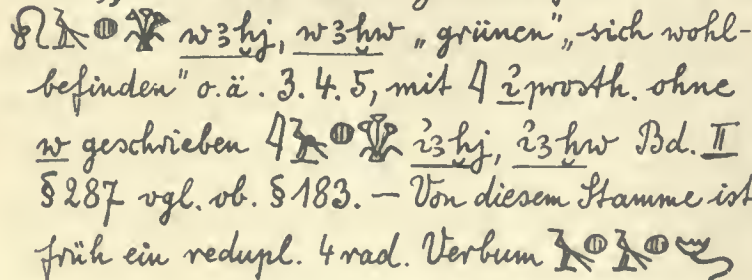 𓍯𓄿𓐍𓇉 w3ḫj, w3ḫw „grünen“, „sich wohl-
befinden“ o.ä. 3. 4. 5, mit 𓇋 ỉ prosth. ohne
w geschrieben 𓇋𓄿𓐍𓇉 ỉ3ḫj, ỉ3ḫw Bd. II
§ 287 vgl. ob. § 183. — Von diesem Stamme ist
früh ein redupl. 4 rad. Verbum 𓄿𓐍𓄿𓐍